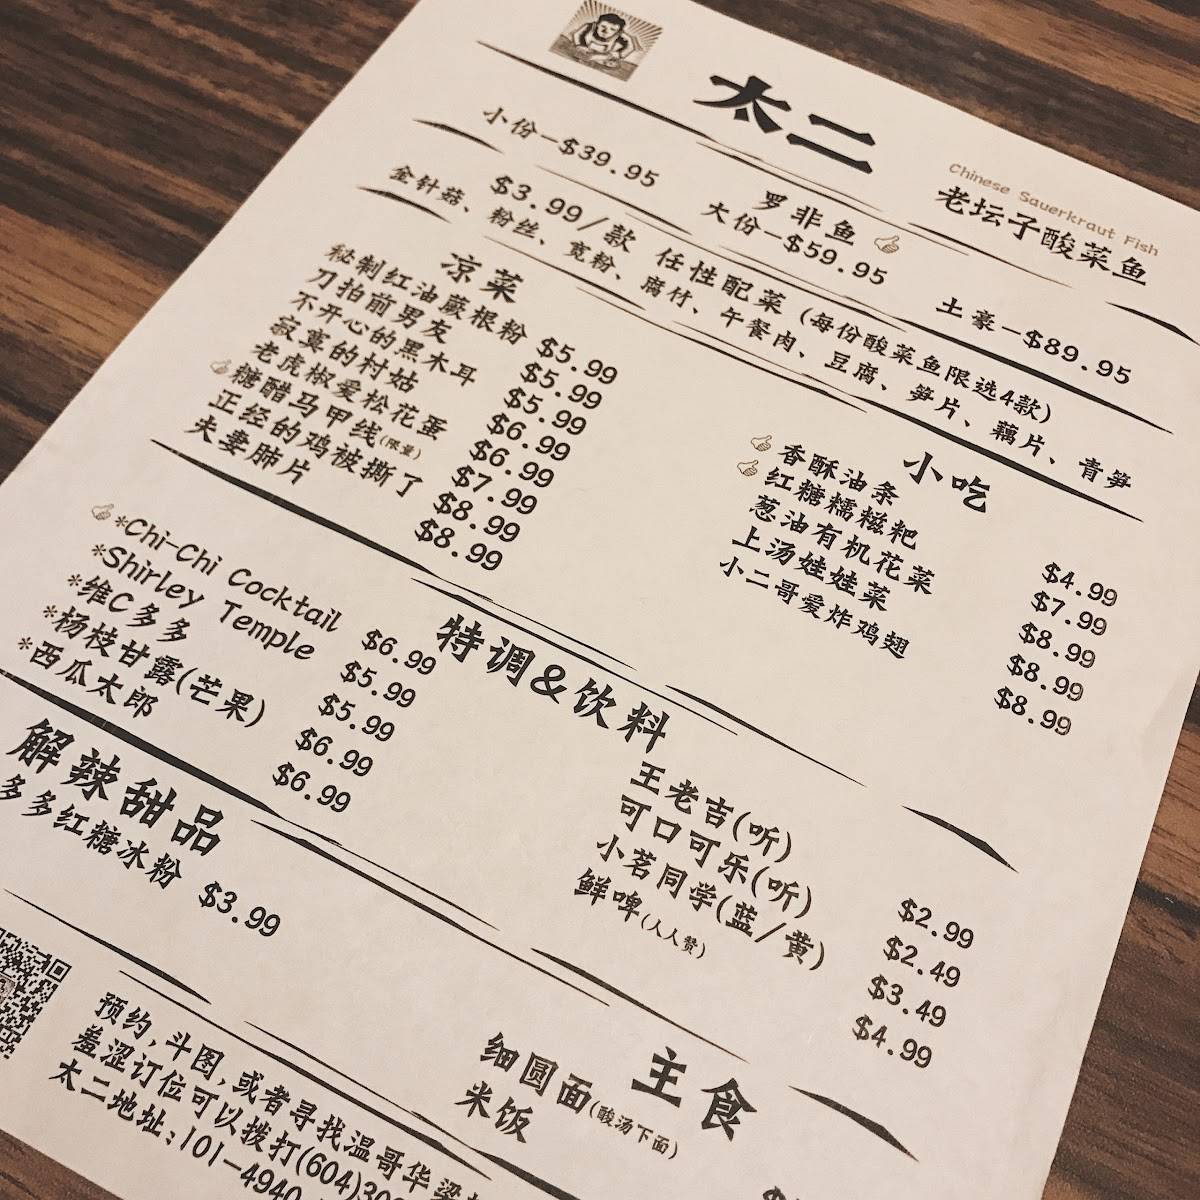 太二
Chinese Sauerkraut Fish
老坛子酸菜鱼
罗非鱼
小份—$39.95 大份—$59.95 土豪—$89.95
$3.99/款 任性配菜 (每份酸菜鱼限选4款)
金针菇、粉丝、宽粉、腐竹、午餐肉、豆腐、笋片、藕片、青笋
凉菜
秘制红油蕨根粉 $5.99
刀拍前男友 $5.99
不开心的黑木耳 $5.99
寂寞的村姑 $6.99
老虎椒爱松花蛋 $6.99
糖醋马甲线(限量) $7.99
正经的鸡被撕了 $8.99
夫妻肺片 $8.99
小吃
香酥油条 $4.99
红糖糯糍粑 $7.99
葱油有机花菜 $8.99
上汤娃娃菜 $8.99
小二哥爱炸鸡翅 $8.99
特调&饮料
*Chi-Chi Cocktail $6.99
*Shirley Temple $5.99
*维C多多 $5.99
*杨枝甘露(芒果) $6.99
*西瓜太郎 $6.99
王老吉(听) $2.99
可口可乐(听) $2.49
小茗同学(蓝/黄) $3.49
鲜啤(人人赞) $4.99
解辣甜品
多多红糖冰粉 $3.99
主食
细圆面(酸汤下面)
米饭
预约,斗图,或者寻找温哥华梁
羞涩订位可以拨打(604)30
太二地址:101-4940